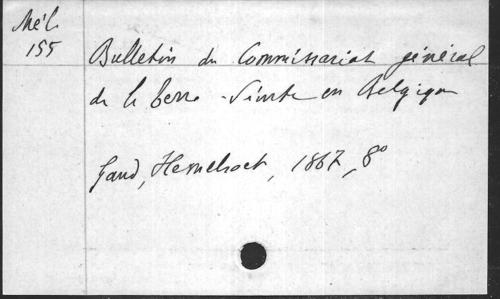 Mél.
155
Bulletin du Commissariat général
de la Terre-Sainte en Belgique
Gand, Hemelsoet, 1867, 8°